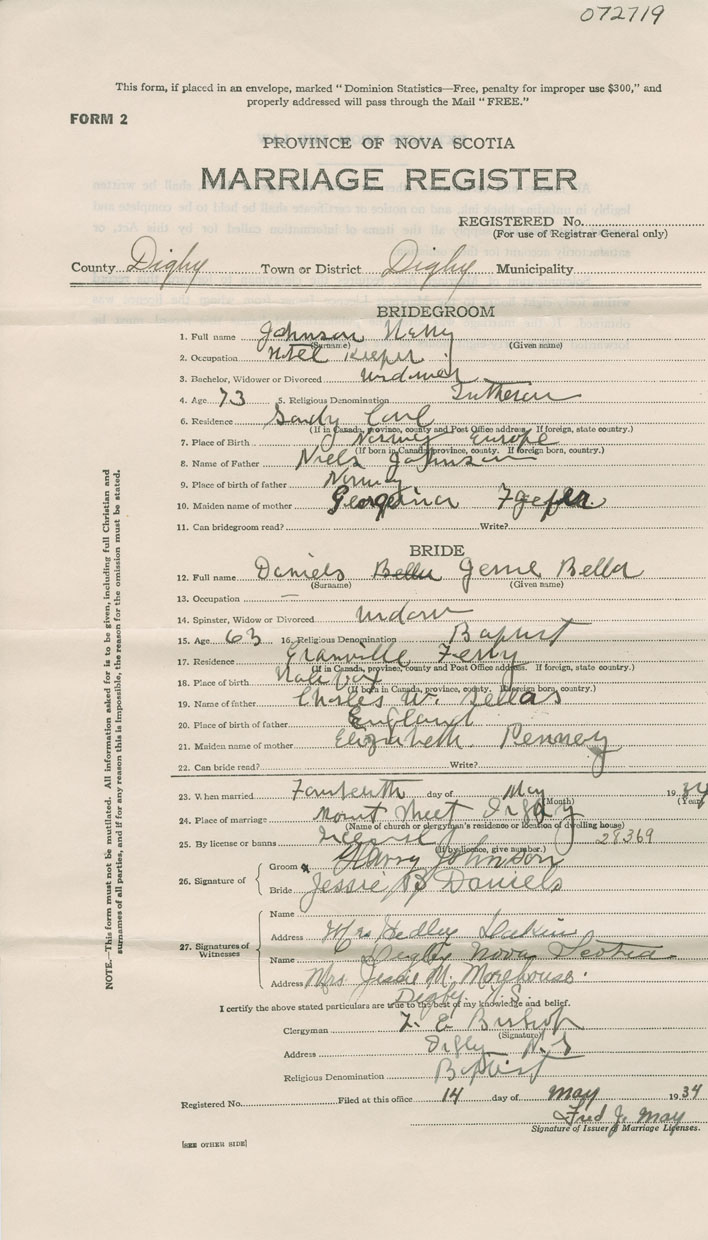 072719
This form, if placed in an envelope, marked "Dominion Statistics—Free, penalty for improper use $300," and
properly addressed will pass through the Mail "FREE."
FORM 2
PROVINCE OF NOVA SCOTIA
MARRIAGE REGISTER
REGISTERED No.
(For use of Registrar General only)
County Digby Town or District Digby Municipality
BRIDEGROOM
1. Full name Johnson Harry
(Surname) (Given name)
2. Occupation Hotel Keeper
3. Bachelor, Widower or Divorced Widower
4. Age 73 5. Religious Denomination Lutheran
6. Residence Sandy Cove
(If in Canada, province, county and Post Office address. If foreign, state country.)
7. Place of Birth Norway Europe
(If born in Canada, province, county. If foreign born, country.)
8. Name of Father Niels Johnson
9. Place of birth of father Norway
10. Maiden name of mother Georgetina
11. Can bridegroom read? Write?
BRIDE
12. Full name Daniels Bella Bella
(Surname) (Given name)
13. Occupation —
14. Spinster, Widow or Divorced Widow
15. Age 63 16. Religious Denomination Baptist
17. Residence Granville Ferry
(If in Canada, province, county and Post Office address. If foreign, state country.)
18. Place of birth Halifax
(If born in Canada, province, county. If foreign born, country.)
19. Name of father Charles W.
20. Place of birth of father England
21. Maiden name of mother Elizabeth Penney
22. Can bride read? Write?
23. When married Fourteenth day of May 1934
(Month) (Year)
24. Place of marriage Mount Street Digby
(Name of church or clergyman's residence or location of dwelling house)
25. By license or banns License 28369
(If by licence, give number.)
26. Signature of
Groom x Harry Johnson
Bride Jessie B Daniels
27. Signatures of Witnesses
Name
Address Mrs Hedley Dakin
Name Digby Nova Scotia
Address Mrs. Jessie M. Morehouse.
Digby N.S.
I certify the above stated particulars are true to the best of my knowledge and belief.
Clergyman E Bishop
(Signature)
Address Digby N.S
Religious Denomination Baptist
Registered No. Filed at this office 14 day of May 1934
Fred J. May
Signature of Issuer of Marriage Licenses.
[SEE OTHER SIDE]
NOTE.—This form must not be mutilated. All information asked for is to be given, including full Christian and
surnames of all parties, and if for any reason this is impossible, the reason for the omission must be stated.